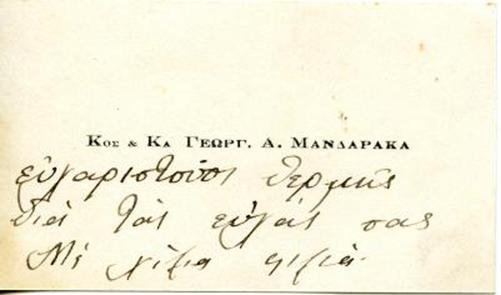 Κος & Κα ΓΕΩΡΓ. Α. ΜΑΝΔΑΡΑΚΑ
εὐχαριστοῦσι θερμῶς
διὰ τὰς εὐχάς σας
Μὲ χίλια φιλιά.